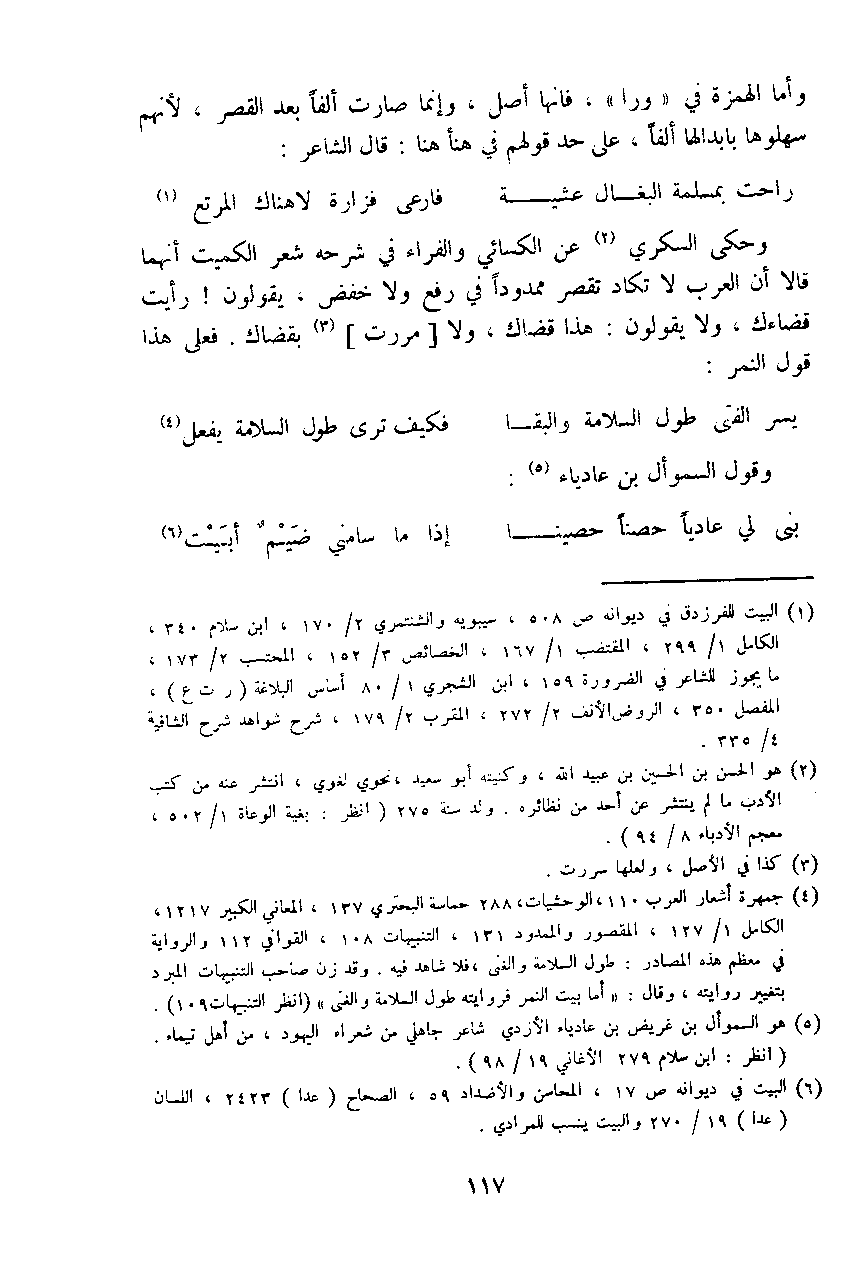 وأما الهمزة في « ورا » ، فانها أصل ، وإنما صارت ألفاً بعد القصر ، لأنهم
سهلوها بابدالها ألفاً ، على حد قولهم في هنأ هنا : قال الشاعر :
راحت بمسلمة البغـــال عشيـــــة فارعى فزارة لاهناك المرتع (١)
وحكى السكري (٢) عن الكسائي والفراء في شرحه شعر الكميت أنهما
قالا أن العرب لا تكاد تقصر ممدوداً في رفع ولا خفض ، يقولون ! رأيت
قضاءك ، ولا يقولون : هذا قضاك ، ولا [ مررت ] (٣) بقضاك . فعلى هذا
قول النمر :
يسر الفتى طول السلامة والبقـــا فكيف ترى طول السلامة يفعل(٤)
وقول السموأل بن عادياء (٥) :
بنى لي عادياً حصناً حصينـــــا إذا ما سامني ضَيْمٌ أبَيْت(٦)
(١) البيت للفرزدق في ديوانه ص ٥٠٨ ، سيبويه والشنتمري ٢/ ١٧٠ ، ابن سلام ٣٤٠ ،
الكامل ١/ ٢٩٩ ، المقتضب ١/ ١٦٧ ، الخصائص ٣/ ١٥٢ ، المحتسب ٢/ ١٧٣ ،
ما يجوز للشاعر في الضرورة ١٥٩ ، ابن الشجري ١/ ٨٠ أساس البلاغة ( ر ت ع ) ،
المفصل ٣٥٠ ، الروض الأنف ٢/ ٢٧٢ ، المقرب ٢/ ١٧٩ ، شرح شواهد شرح الشافية
٤/ ٣٣٥ .
(٢) هو الحسن بن الحسين بن عبيد الله ، وكنيته أبو سعيد ،نحوي لغوي ، انتشر عنه من كتب
الأدب ما لم ينتشر عن أحد من نظائره . ولد سنة ٢٧٥ ( انظر : بغية الوعاة ١/ ٥٠٢ ،
معجم الأدباء ٨/ ٩٤ ) .
(٣) كذا في الأصل ، ولعلها سررت .
(٤) جمهرة أشعار العرب ١١٠ ،الوحشيات، ٢٨٨ حماسة البحتري ١٣٧ ، المعاني الكبير ١٢١٧،
الكامل ١/ ١٢٧ ، المقصور والممدود ١٣١ ، التنبيهات ١٠٨ ، القوافي ١١٢ والرواية
في معظم هذه المصادر : طول السلامة والغنى ،فلا شاهد فيه . وقد زن صاحب التنبيهات المبرد
بتغيير روايته ، وقال : « أما بيت النمر فروايته طول السلامة والغنى » (انظر التنبيهات١٠٩) .
(٥) هو السموأل بن غريض بن عادياء الأزدي شاعر جاهلي من شعراء اليهود ، من أهل تيماء .
( انظر : ابن سلام ٢٧٩ الأغاني ١٩ / ٩٨ ) .
(٦) البيت في ديوانه ص ١٧ ، المحاسن والأضداد ٥٩ ، الصحاح ( عدا ) ٢٤٢٣ ، اللسان
( عدا ) ١٩ / ٢٧٠ والبيت ينسب للمرادي .
١١٧